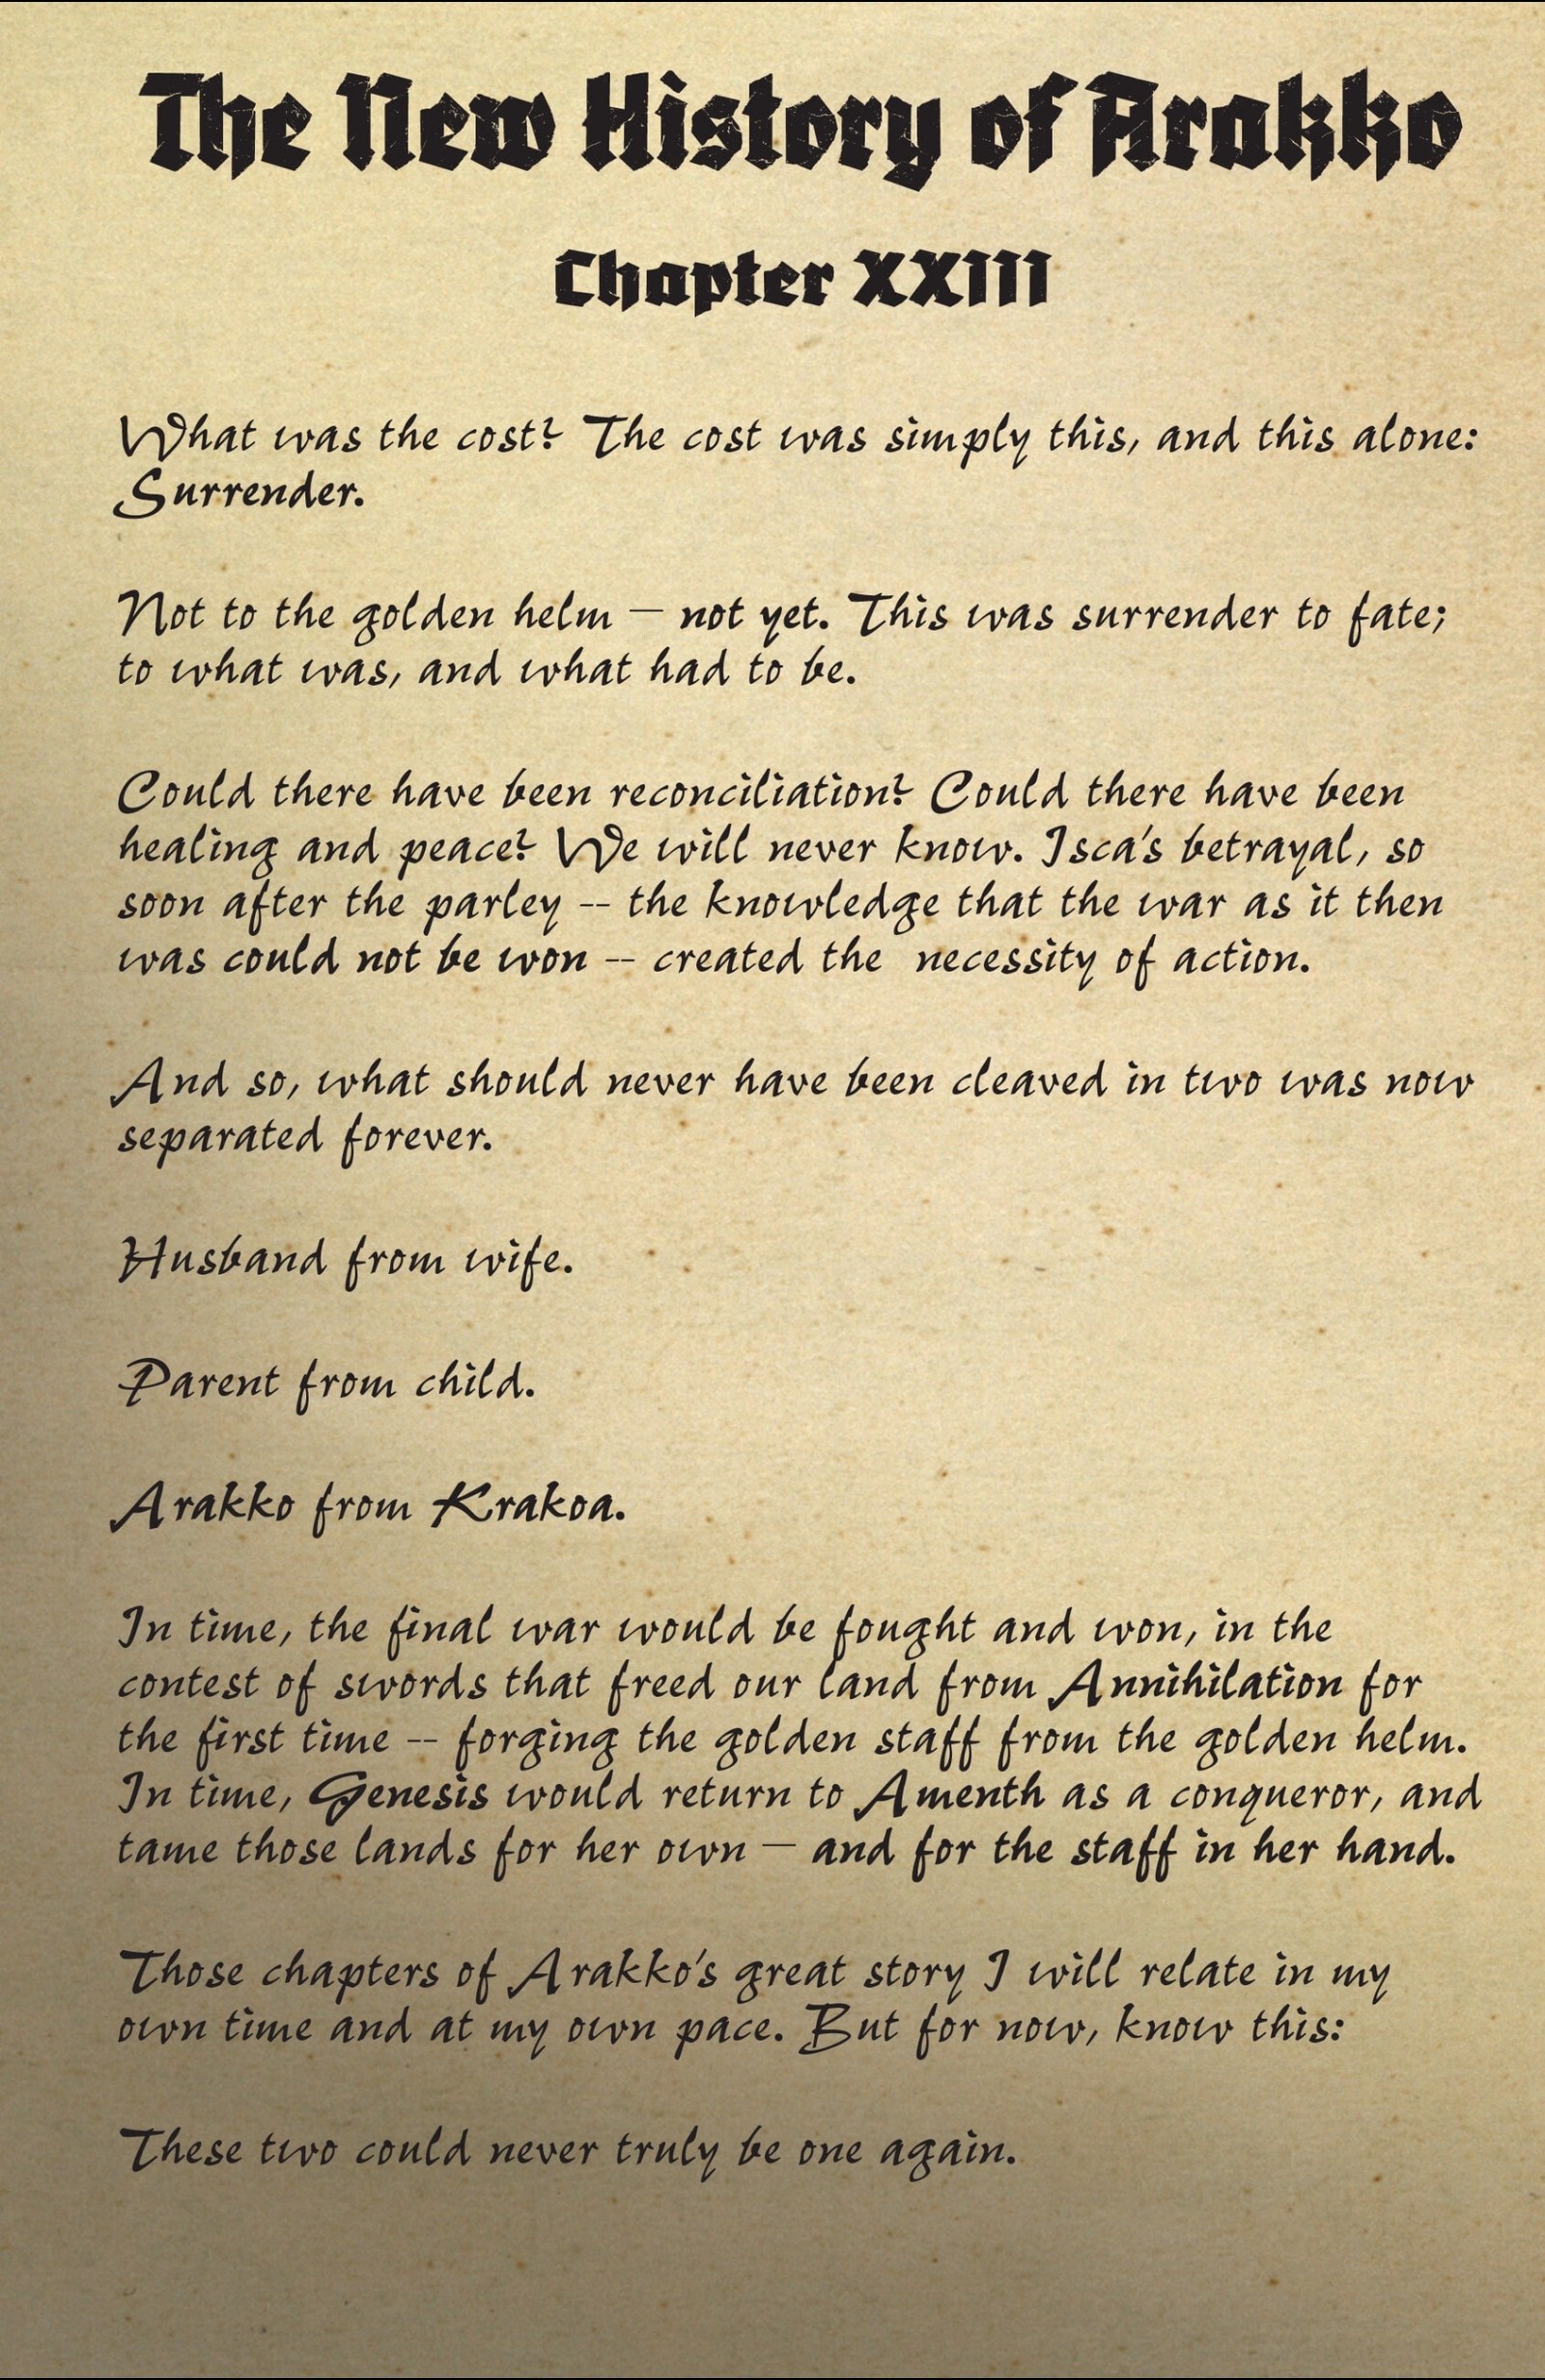 The New History of Arakko
Chapter XXIII
What was the cost? The cost was simply this, and this alone:
Surrender.
Not to the golden helm — not yet. This was surrender to fate;
to what was, and what had to be.
Could there have been reconciliation? Could there have been
healing and peace? We will never know. Isca's betrayal, so
soon after the parley -- the knowledge that the war as it then
was could not be won -- created the  necessity of action.
And so, what should never have been cleaved in two was now
separated forever.
Husband from wife.
Parent from child.
Arakko from Krakoa.
In time, the final war would be fought and won, in the
contest of swords that freed our land from Annihilation for
the first time -- forging the golden staff from the golden helm.
In time, Genesis would return to Amenth as a conqueror, and
tame those lands for her own — and for the staff in her hand.
Those chapters of Arakko's great story I will relate in my
own time and at my own pace. But for now, know this:
These two could never truly be one again.